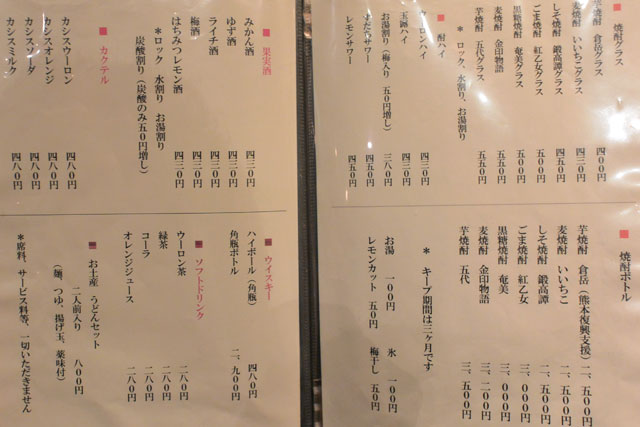 ■ 焼酎グラス
芋焼酎 倉岳グラス 四〇〇円
麦焼酎 いいちこグラス 四三〇円
しそ焼酎 鍛高譚グラス 四五〇円
ごま焼酎 紅乙女グラス 五〇〇円
黒糖焼酎 奄美グラス 五五〇円
麦焼酎 金印物語 五五〇円
芋焼酎 五代グラス 五五〇円
*ロック、水割り、お湯割り
■ 酎ハイ
ウーロンハイ 四三〇円
玉露ハイ 四三〇円
お湯割り(梅入り 五〇円増し) 三八〇円
すだちサワー 四五〇円
レモンサワー 四五〇円
■ 焼酎ボトル
芋焼酎 倉岳(熊本復興支援) 二、五〇〇円
麦焼酎 いいちこ 二、五〇〇円
しそ焼酎 鍛高譚 二、五〇〇円
ごま焼酎 紅乙女 三、〇〇〇円
黒糖焼酎 奄美 三、〇〇〇円
麦焼酎 金印物語 三、二〇〇円
芋焼酎 五代 三、五〇〇円
*キープ期間は三ヶ月です
お湯 一〇〇円 氷 一〇〇円
レモンカット 五〇円 梅干し 五〇円
■ 果実酒
みかん酒 四三〇円
ゆず酒 四三〇円
ライチ酒 四三〇円
梅酒 四三〇円
はちみつレモン酒 四三〇円
*ロック 水割り お湯割り
炭酸割り(炭酸のみ五〇円増し)
■ カクテル
カシスウーロン 四八〇円
カシスオレンジ 四八〇円
カシスソーダ 四八〇円
カシスミルク 四八〇円
■ ウイスキー
ハイボール(角瓶) 四八〇円
角瓶ボトル 二、九〇〇円
■ ソフトドリンク
ウーロン茶 二八〇円
緑茶 二八〇円
コーラ 二八〇円
オレンジジュース 二八〇円
■ お土産 うどんセット
二人前入り 八〇〇円
(麺、つゆ、揚げ玉、薬味付)
*席料、サービス料等、一切いただきません